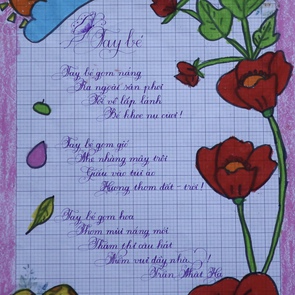 Tay bé
Tay bé gom nắng
Ra ngoài sân phơi
Tối về lấp lánh
Bé khoe nụ cười!
Tay bé gom gió
Nhẹ nhàng mây trôi
Giấu vào túi áo
Hương thơm đất - trời!
Tay bé gom hoa
Thơm mùi nắng mới
Thầm thì câu hát
Thêm vui đầy nhà!
Trần Nhật Hà